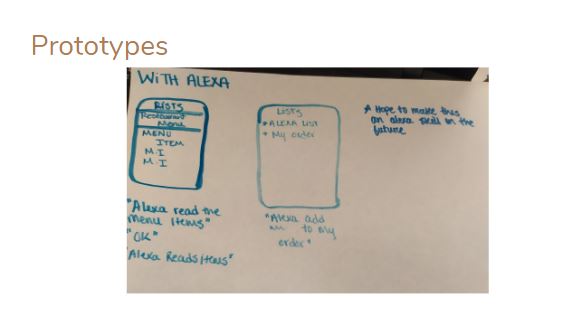 Prototypes
WITH ALEXA
LISTS
Restaurant
Menu
MENU
ITEM
M.I
M.I
"Alexa read the
menu items"
"OK"
"Alexa Reads items"
Lists
ALEXA LIST
My order
"Alexa add
to my
order"
* Hope to make this
an alexa skill in the
future